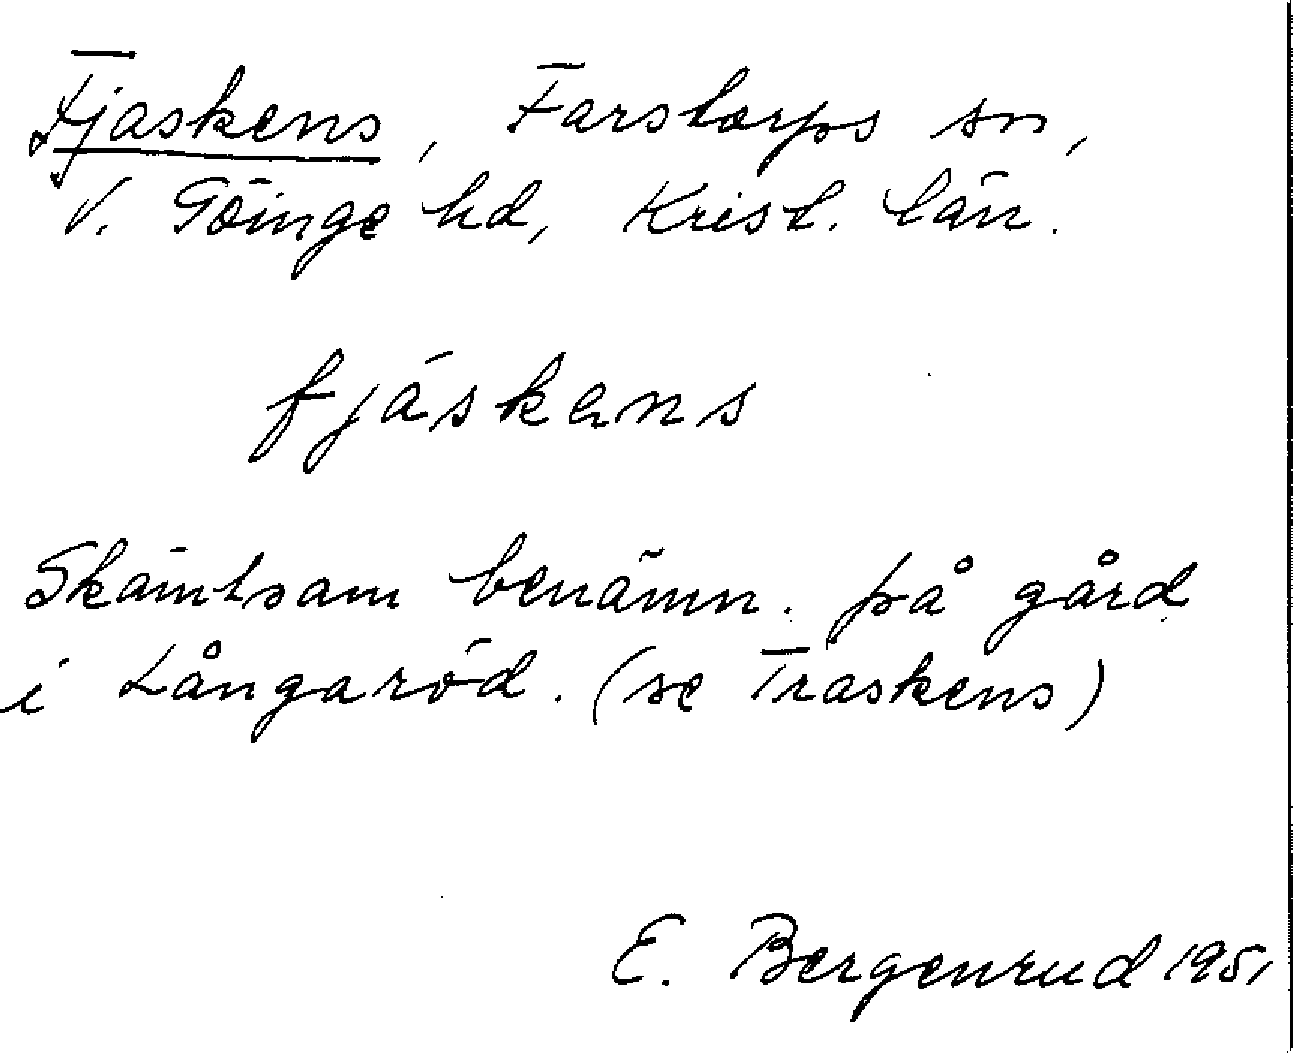 Fjaskens, Farstorps sn,
V. Göinge hd, Krist. län.
fjáskens
Skämtsam benämn. på gård
i Långaröd. (se Traskens)
E. Bergenrud 1951